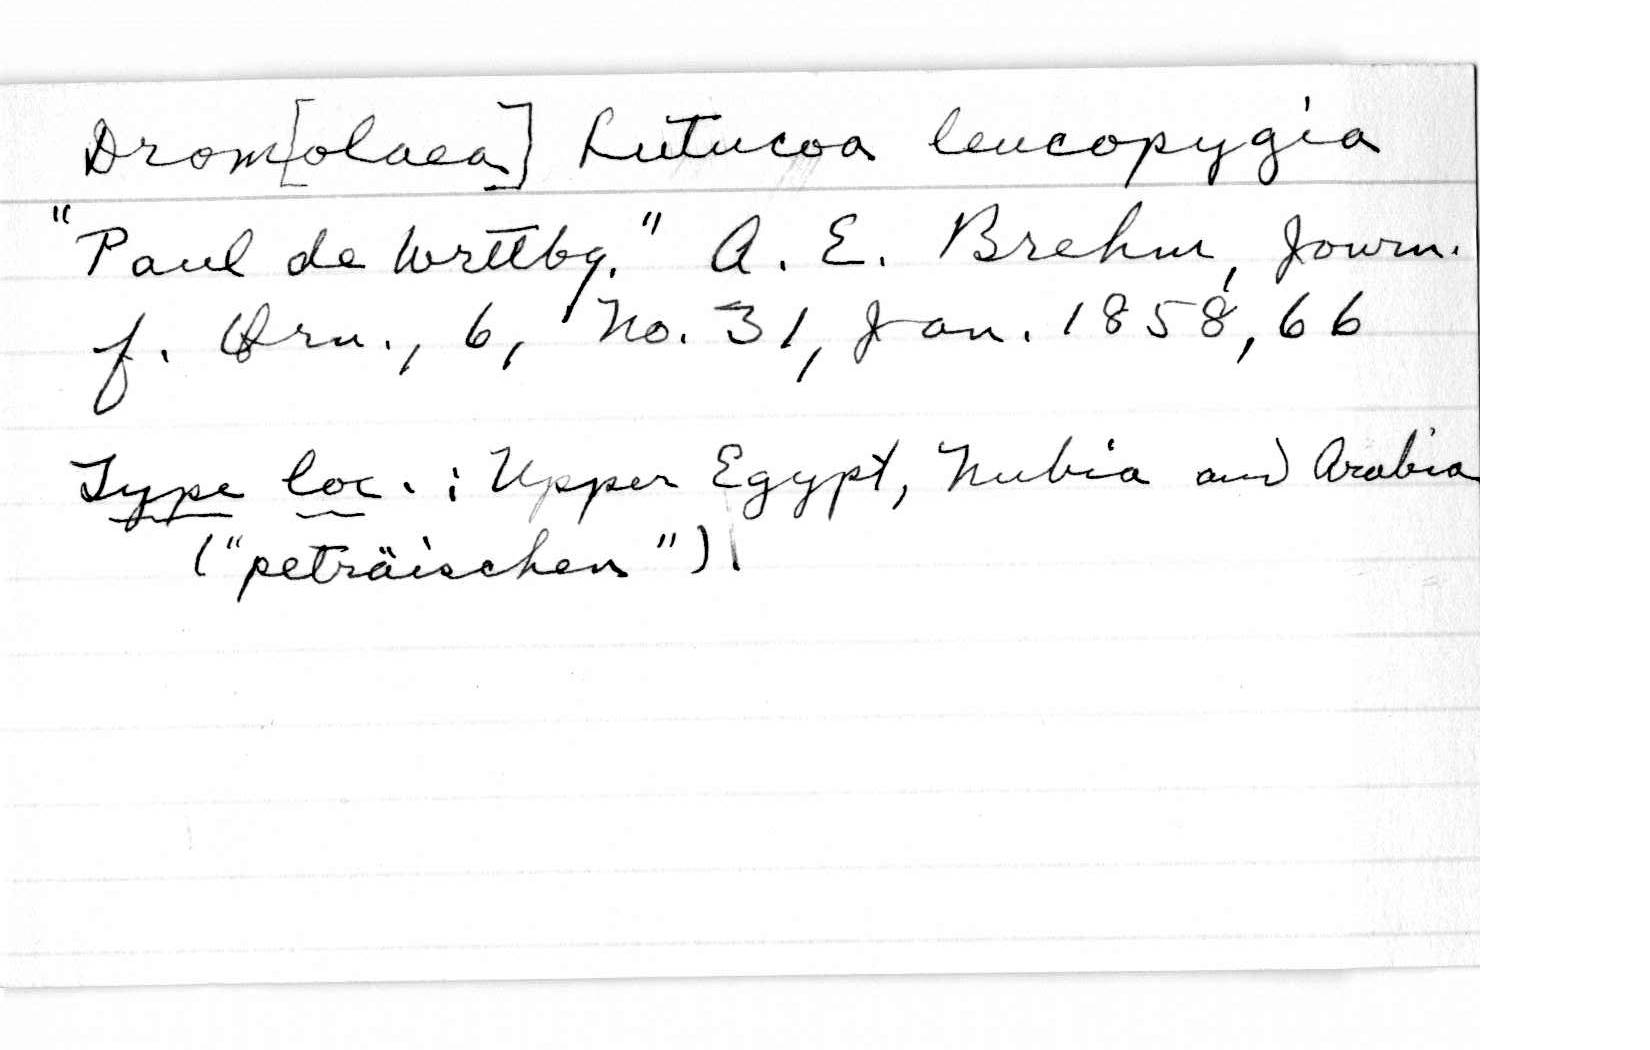 Drom[olaea] Lutucoa leucopygia
"Paul de Wrttbg." A. E. Brehm, Journ.
f. Orn., 6, No. 31, Jan. 1858, 66
Type loc.: Upper Egypt, Nubia and Arabia
("peträischen").